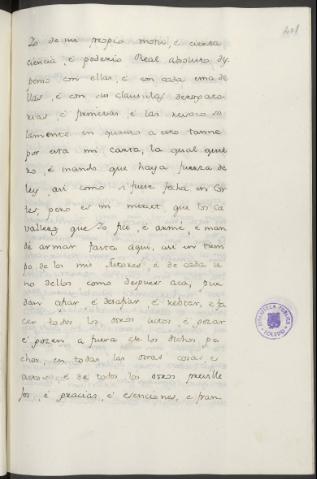 Yo de mi propio motu, é cierta
ciencia, é poderio Real absoluto dis
penso con ellas, é con cada una de
llas, é con sus clausulas derogato
rias, é primeras, é las revoco so
lamente en quanto a esto tanne
por esta mi carta, la qual quie
ro, é mando que haya fuerza de
ley, asi como si fuese fecha en Cor
tes; pero es mi merced que los ca
valleros que Yo fice, é armé, é man
dé armar fasta aqui, asi en tiem
po de los mis Tutores, é de cada u
no dellos, como despues acá, pue
dan afiar é desafiar é reptar, é fa
cer todos los otros autos, é gozar
é gozen a fuera de los dichos pe
chos, en todas las otras cosas, é
autos, é de todos los otros preville
jos, é gracias, é esenciones, é fran
BIBLIOTECA PUBLICA
TOLEDO